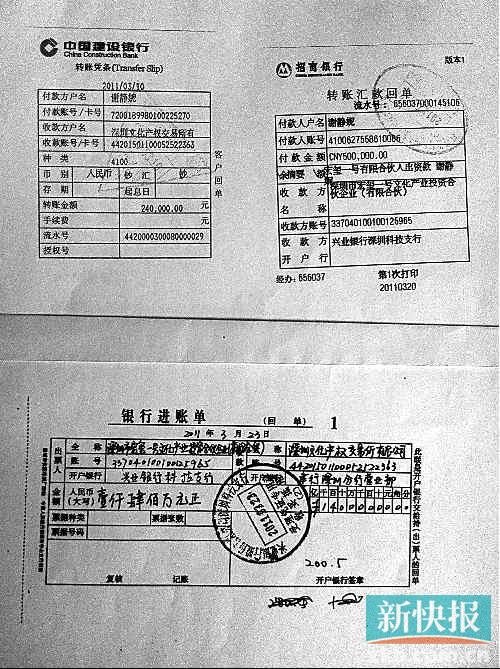 中国建设银行
China Construction Bank
转账凭条(Transfer Slip)
2011/03/10
付款方户名 谢静妮
付款账号/卡 7200189980100225270
收款方户名 深圳文化产权交易所有
收款账号/卡 44201501100052522363
种类 4100
币别 人民币 钞汇 钞
存期 1 起息日
转账金额 240,000.00 元
手续费 元
流水号 4420000300080000029
授权号
客户回单
招商银行
CHINA MERCHANTS BANK
版本1
转账汇款回单
流水号: 656037000145106
付款人户名 谢静妮
付款人账号 4100627558610086
付款金额 CNY500,000.00
摘要 一号有限合伙人出资款 谢静
收款方名称 一号文化产业投资合伙企业(有限合伙)
收款方账号 337040100100125965
收款方开户行 兴业银行深圳科技支行
经办: 656037 第1次打印
20110320
银行进账单 (回单) 1
2011年3月23日
出票人 全称
账号 337040100100125965
开户银行 兴业银行科技支行
收款人 全称 深圳文化产权交易所有限公司
账号 44201501100052522363
开户银行 建行深圳分行营业部
金额 人民币(大写) 壹仟肆佰万元正
亿千百十万千百十元角分
票据种类 票据张数
票据号码
2011.03.23
200.5
复核 记账 开户银行签章
此联是开户银行交给持(出)票人的回单
新快报